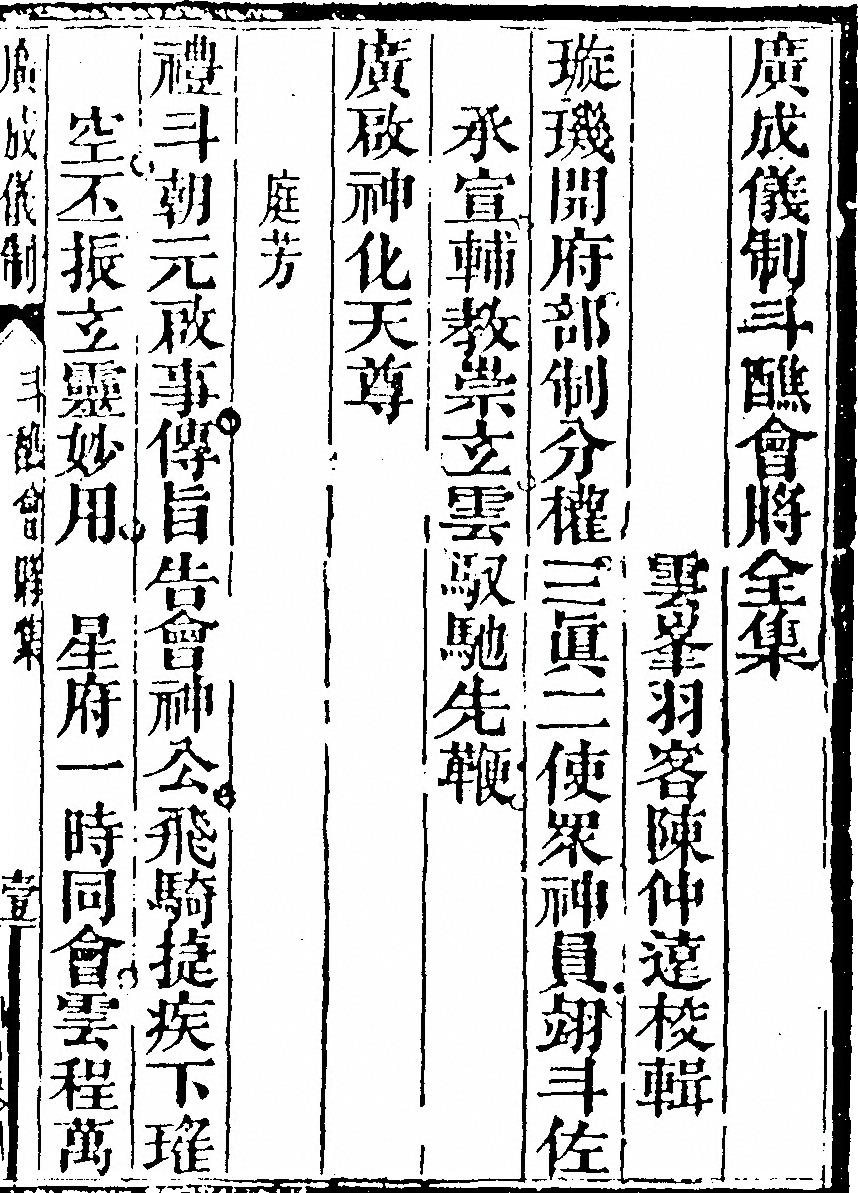 廣成儀制斗醮會將全集
雲峯羽客陳仲遠校輯
璇璣開府部制分權三眞二使眾神員翊斗佐
承宣輔教崇立雲馭馳先鞭
廣啟神化天尊
庭芳
禮斗朝元啟事傳旨告會神公飛騎捷疾下瑤
空丕振立靈妙用　星府一時同會雲程萬
廣成儀制　斗醮會將集　壹